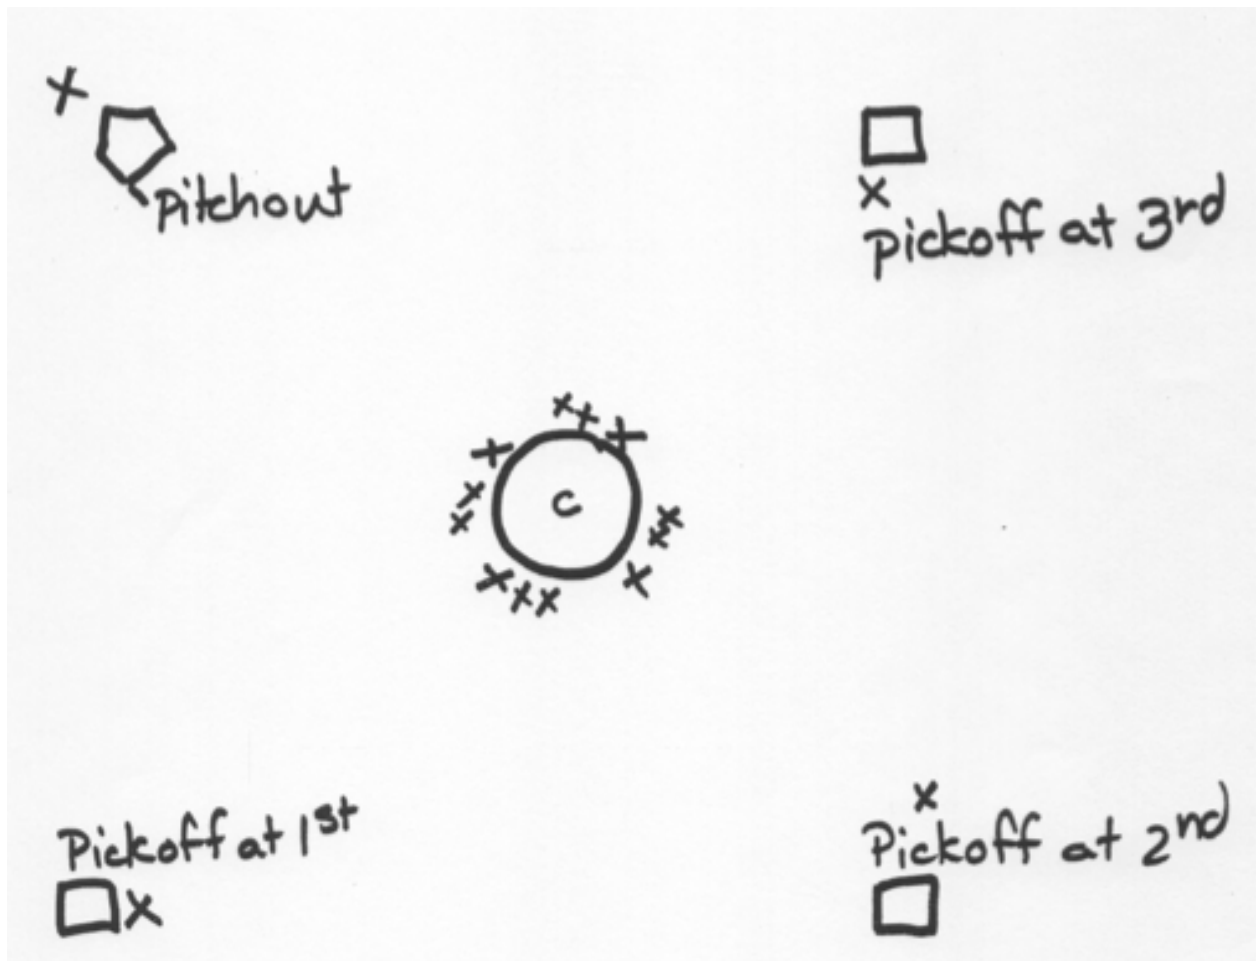 X
Pitchout
X
pickoff at 3rd
x x X
X
x
x
C
x
x
X x x
x
Pickoff at 1st
X
x
Pickoff at 2nd